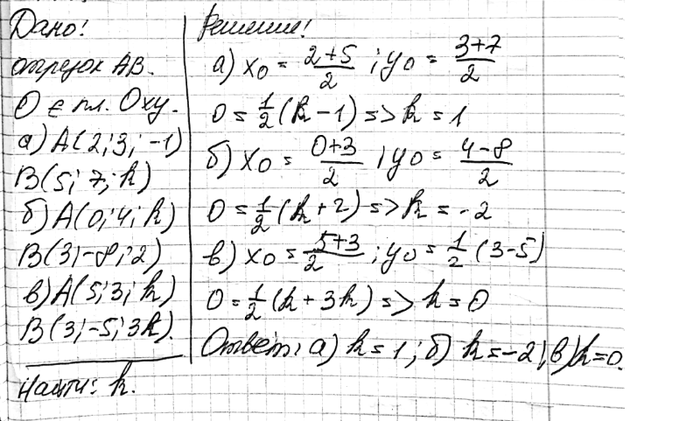 Дано!
отрезок AB.
O ∈ пл. Oxy.
а) A(2; 3; -1)
B(5; 7; k)
б) A(0; 4; k)
B(3; -8; 2)
в) A(5; 3; k)
B(3; -5; 3k).
Найти: k.
Решение!
а) x0 = (2+5)/2 ; y0 = (3+7)/2
0 = 1/2 (k-1) => k = 1
б) x0 = (0+3)/2 ; y0 = (4-8)/2
0 = 1/2 (k+2) => k = -2
в) x0 = (5+3)/2 ; y0 = 1/2 (3-5)
0 = 1/2 (k+3k) => k = 0
Ответ: а) k=1; б) k=-2; в) k=0.